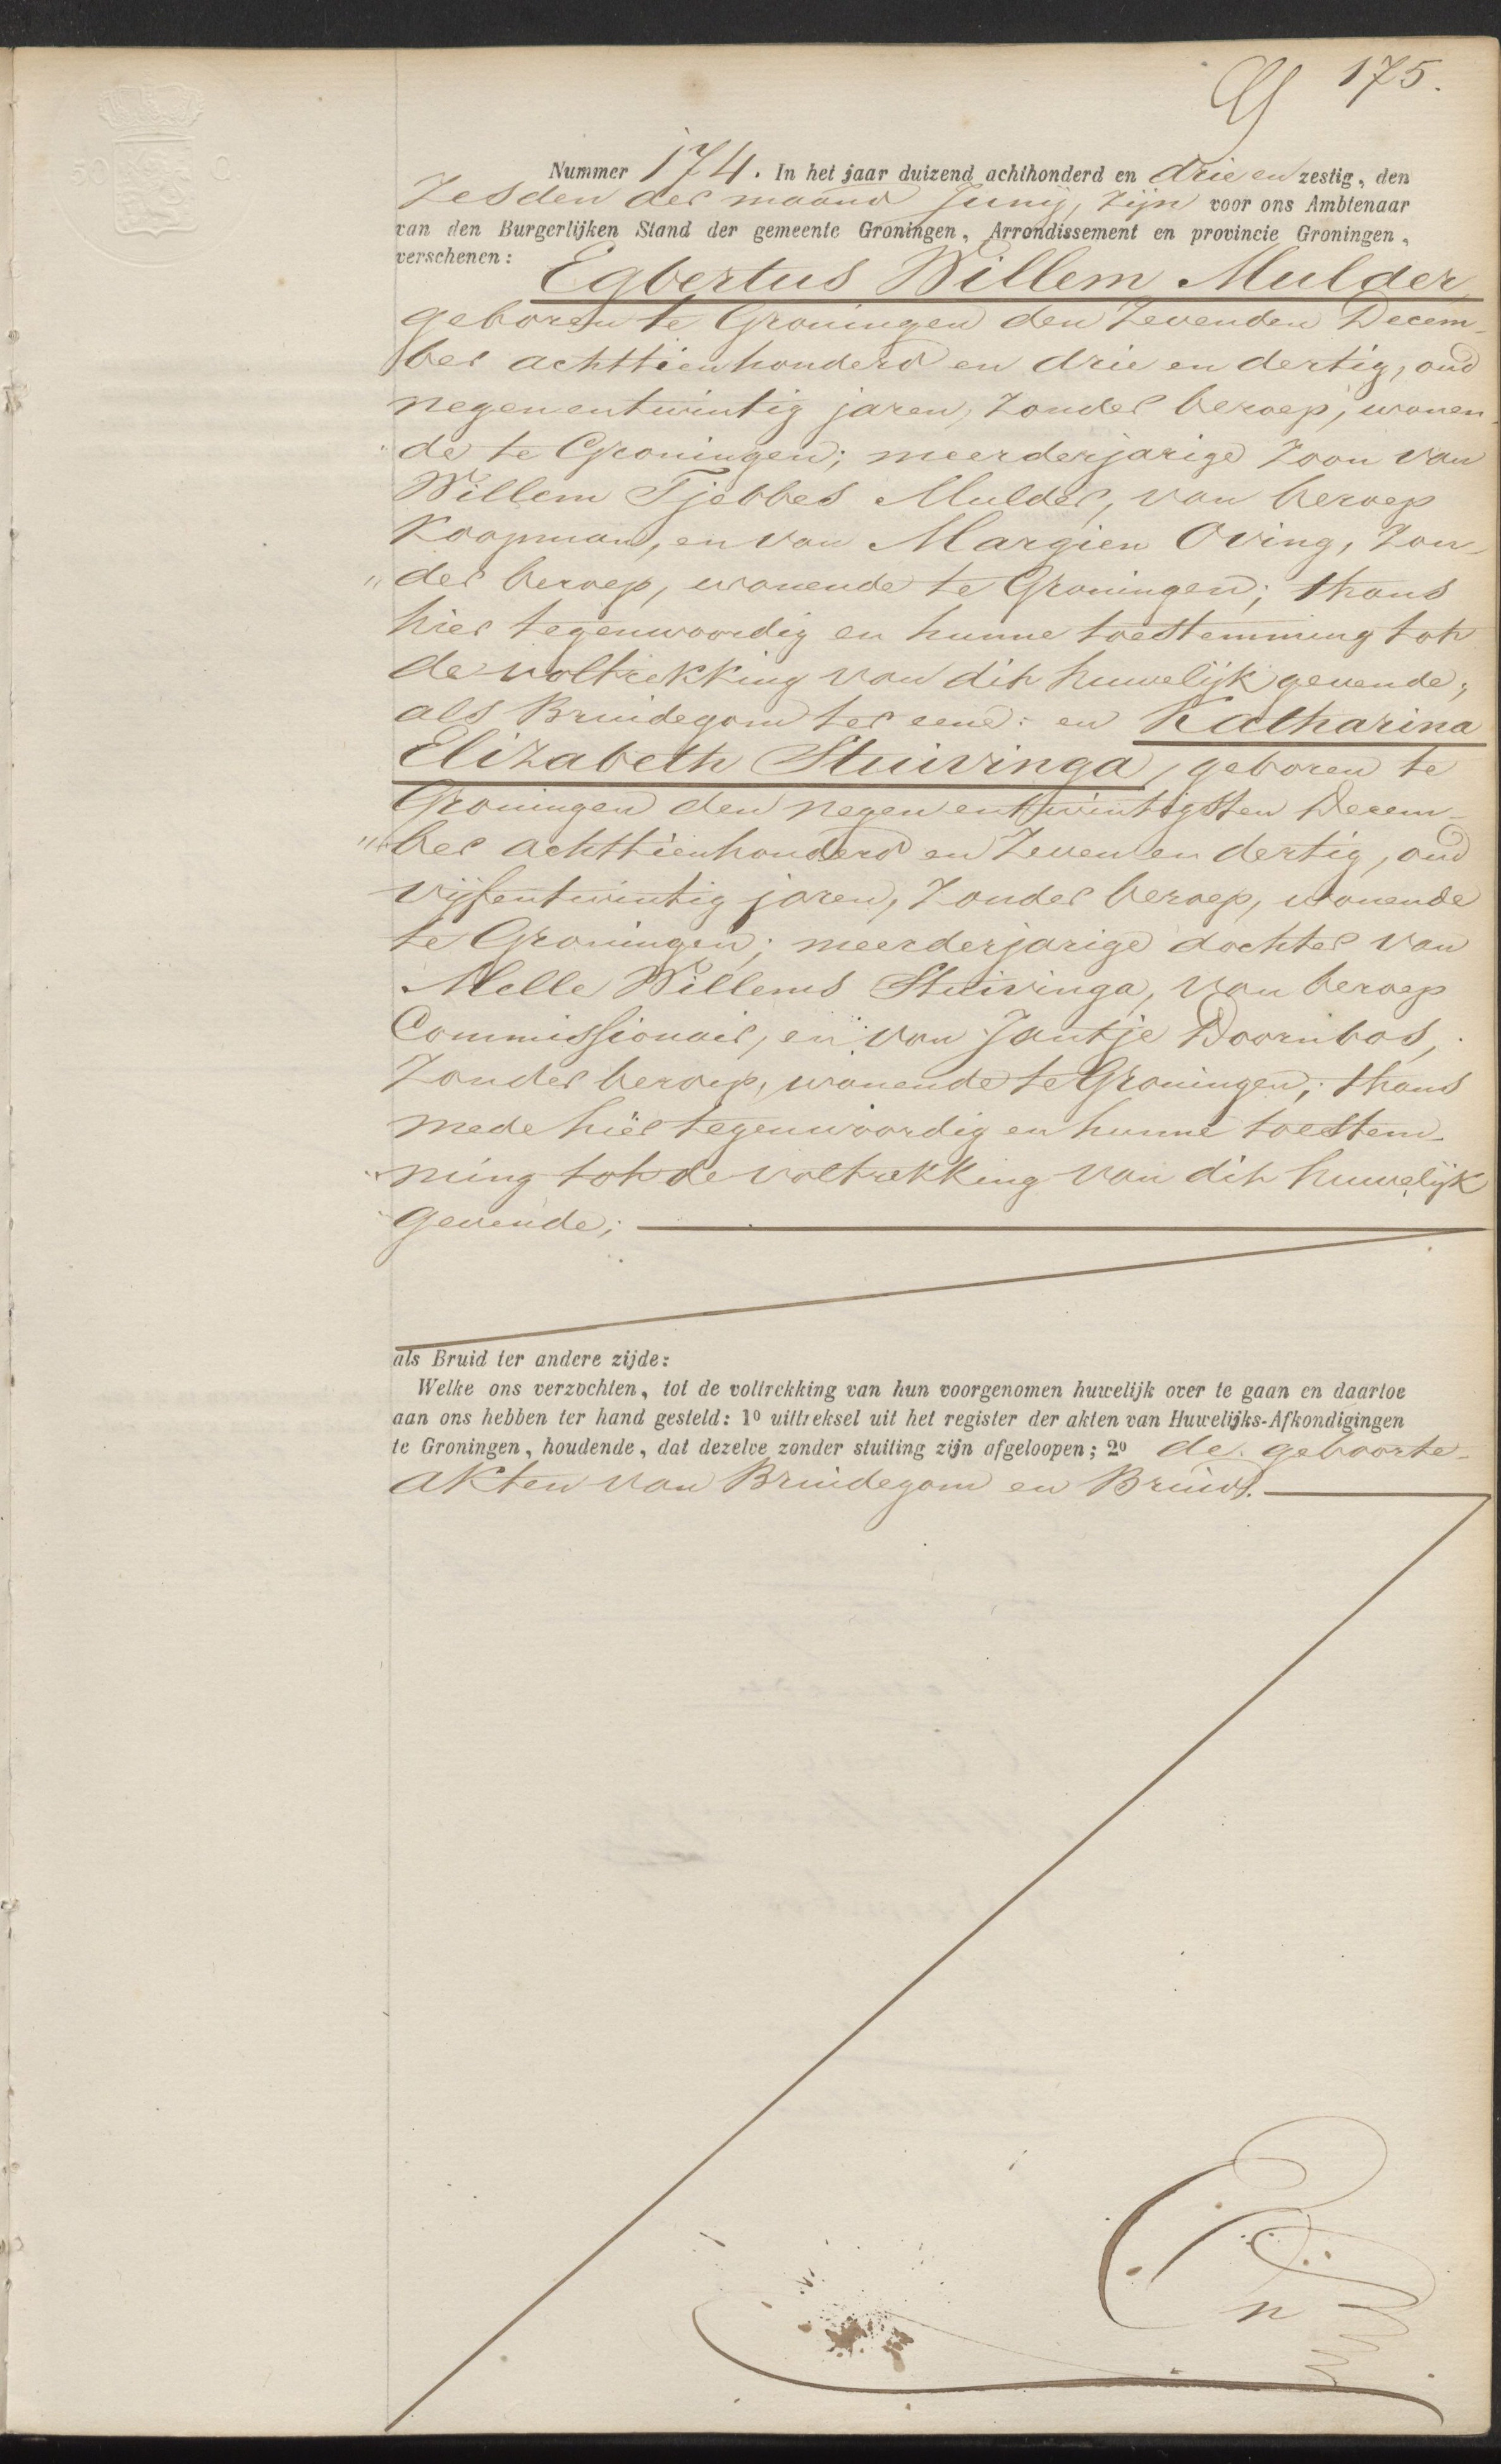 175.
50 C
Nummer 174. In het jaar duizend achthonderd en drie en zestig, den
Zesden der maand Junij, zijn voor ons Ambtenaar
van den Burgerlijken Stand der gemeente Groningen, Arrondissement en provincie Groningen,
verschenen: Egbertus Willem Mulder,
geboren te Groningen den Zevenden Decem-
ber achttienhonderd en drie en dertig, oud
negenentwintig jaren, zonder beroep, wonen-
de te Groningen; meerderjarige zoon van
Willem Tjebbes Mulder, van beroep
Koopman, en van Margien Oving, zon-
der beroep, wonende te Groningen; thans
hier tegenwoordig en hunne toestemming tot
de voltrekking van dit huwelijk gevende,
als Bruidegom ter eene: en Katharina
Elizabeth Stuivinga, geboren te
Groningen den negenentwintigsten Decem-
ber achttienhonderd en Zeven en dertig, oud
vijfentwintig jaren, zonder beroep, wonende
te Groningen; meerderjarige dochter van
Melle Willems Stuivinga, van beroep
Commissionair, en van Jantje Doornbos,
zonder beroep, wonende te Groningen; thans
mede hier tegenwoordig en hunne toestem-
ming tot de voltrekking van dit huwelijk
gevende;
als Bruid ter andere zijde:
Welke ons verzochten, tot de voltrekking van hun voorgenomen huwelijk over te gaan en daartoe
aan ons hebben ter hand gesteld: 1º uittreksel uit het register der akten van Huwelijks-Afkondigingen
te Groningen, houdende, dat dezelve zonder stuiting zijn afgeloopen; 2º de geboorte-
akten van Bruidegom en Bruid.
En